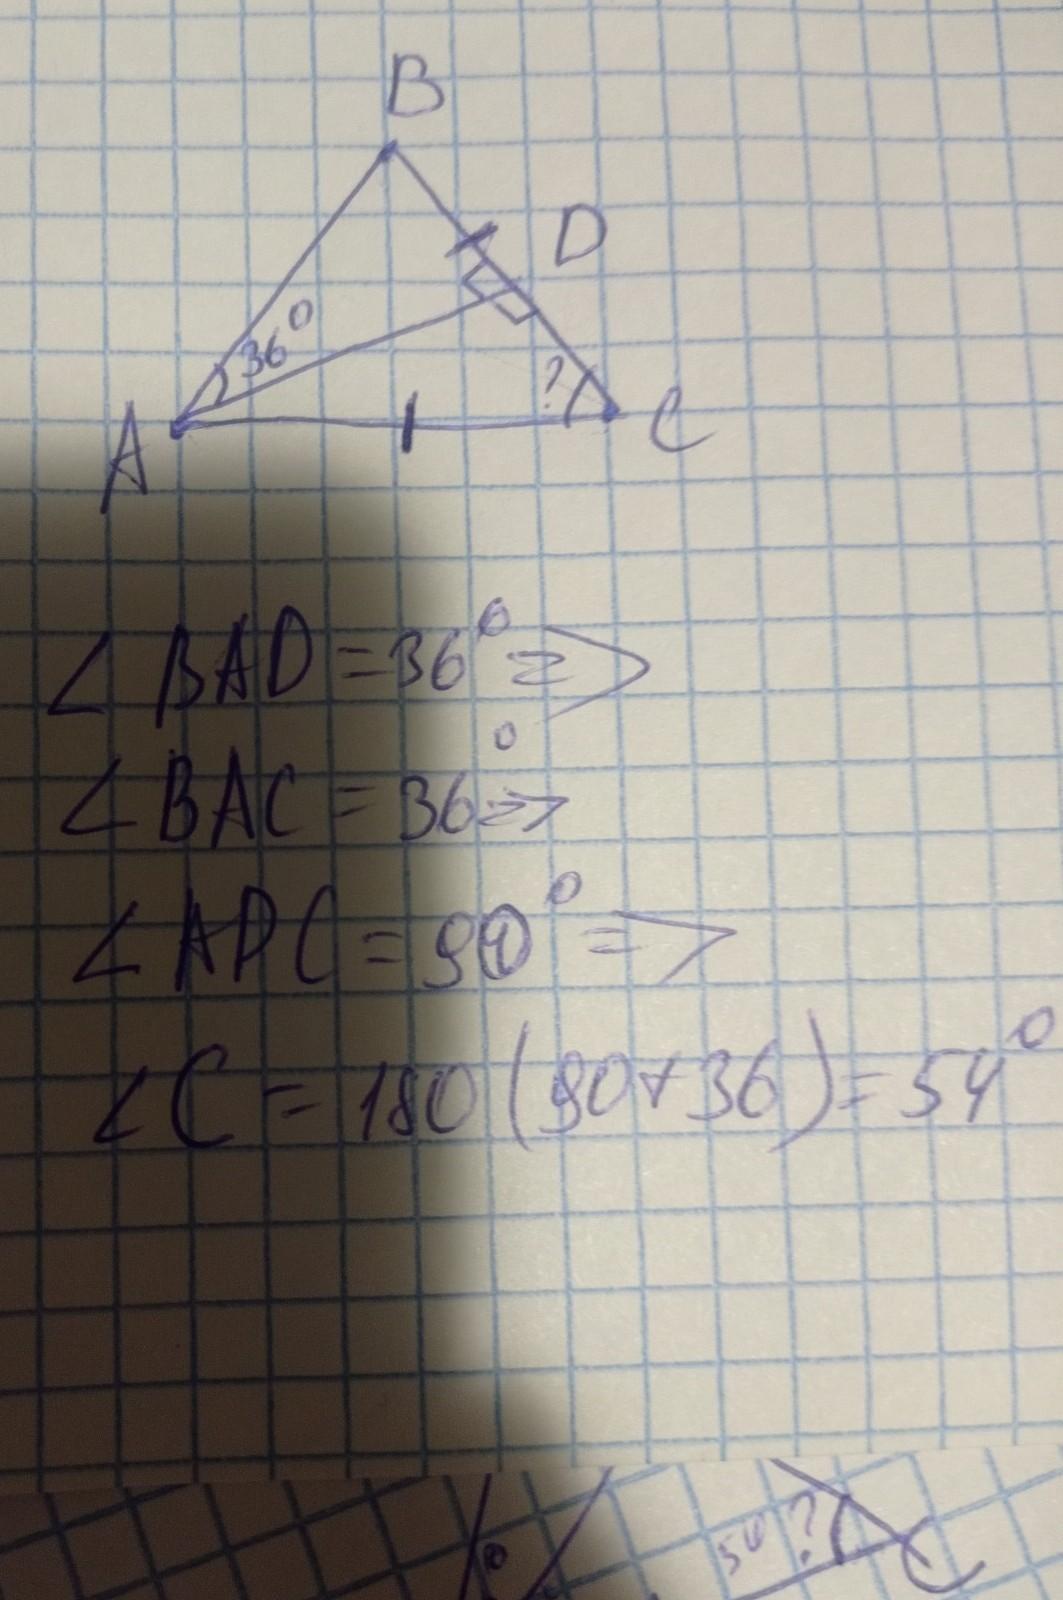 B
D
36°
?
A
C
∠ BAD = 36° =>
∠ BAC = 36° =>
∠ ADC = 90° =>
∠ C = 180 (90+36) = 54°
54 ?
C